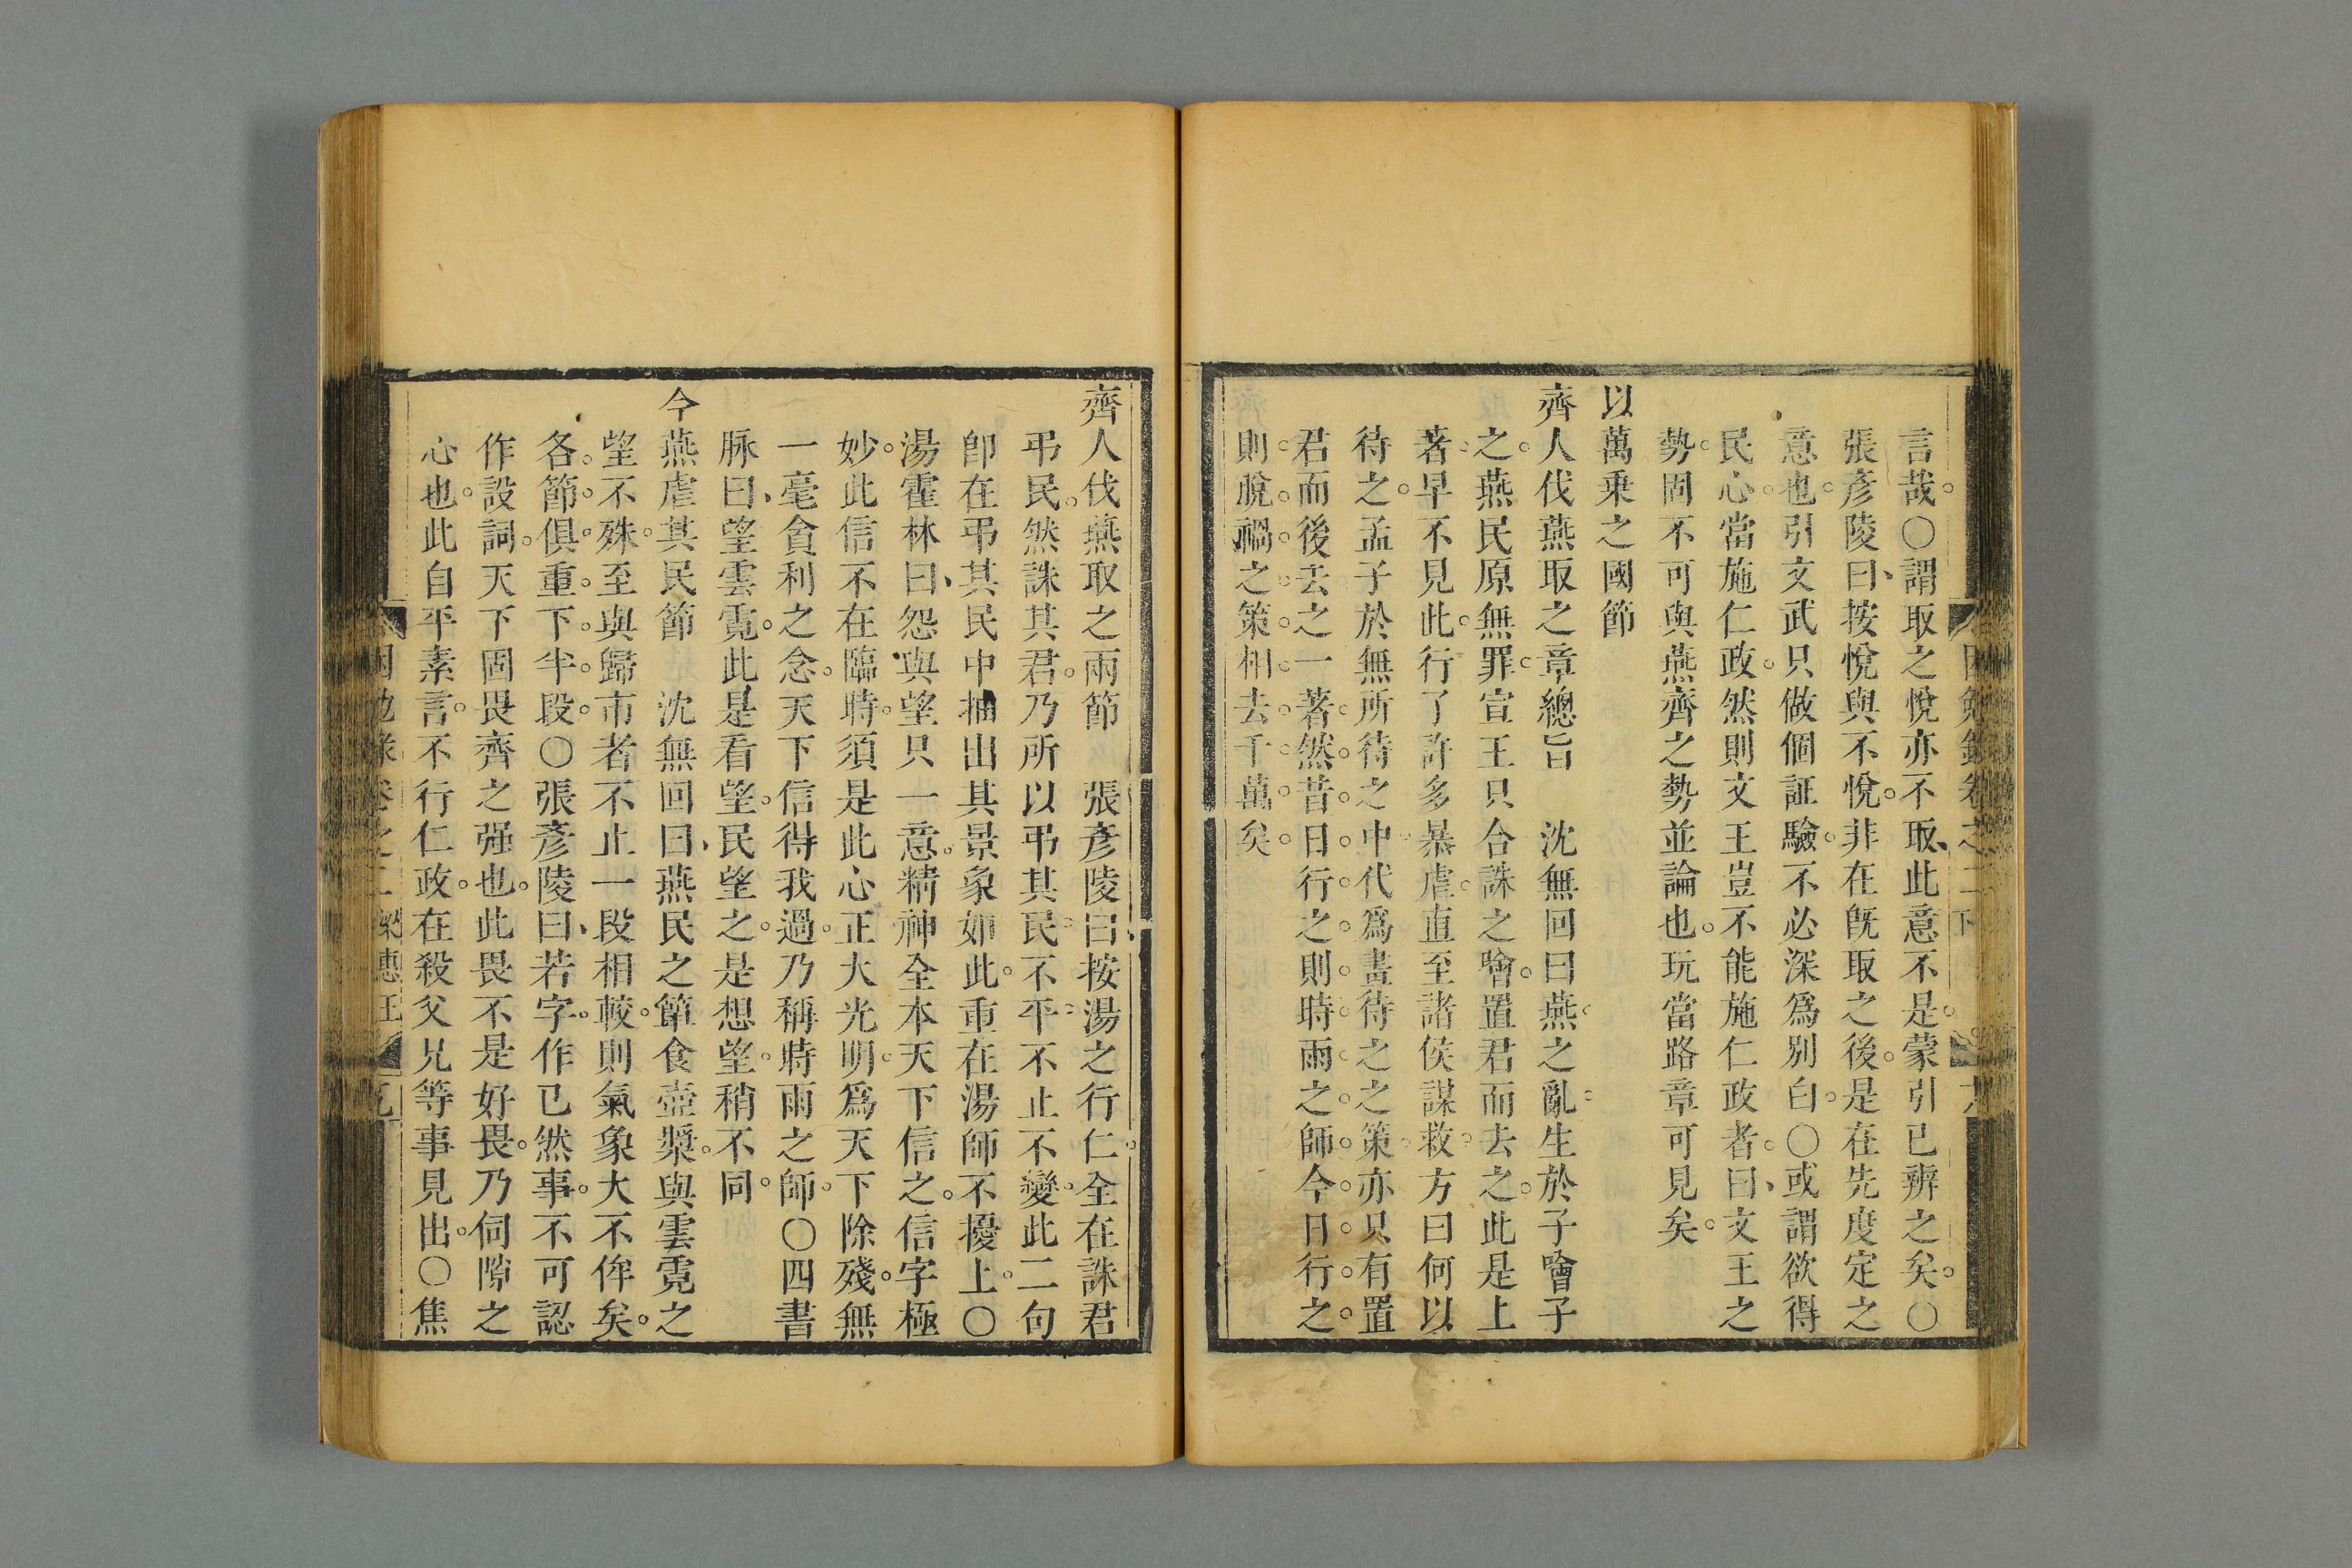 言哉○謂取之悅亦不取此意不是蒙引已辨之矣○
張彥陵曰按悅與不悅非在旣取之後是在先度定之
意也引文武只做個証驗不必深爲別白○或謂欲得
民心當施仁政然則文王豈不能施仁政者曰文王之
勢固不可與燕齊之勢並論也玩當路章可見矣
以萬乗之國節
齊人伐燕取之章總旨　沈無回曰燕之亂生於子噲子
之燕民原無罪宣王只合誅之噲置君而去之此是上
著早不見此行了許多暴虐直至諸侯謀救方曰何以
待之孟子於無所待之中代爲畫待之之策亦只有置
君而後去之一著然昔日行之則時雨之師今日行之
則脫禍之策相去千萬矣
齊人伐燕取之兩節　張彥陵曰按湯之行仁全在誅君
弔民然誅其君乃所以弔其民不平不止不變此二句
卽在弔其民中抽出其景象如此重在湯師不擾上○
湯霍林曰怨與望只一意精神全本天下信之信字極
妙此信不在臨時須是此心正大光明爲天下除殘無
一毫貪利之念天下信得我過乃稱時雨之師○四書
脉曰望雲霓此是看望民望之是想望稍不同
今燕虐其民節　沈無回曰燕民之簞食壺漿與雲霓之
望不殊至與歸市者不止一段相較則氣象大不侔矣
各節俱重下半段○張彥陵曰若字作已然事不可認
作設詞天下固畏齊之强也此畏不是好畏乃伺隙之
心也此自平素言不行仁政在殺父兄等事見出○焦
卷之二梁惠王